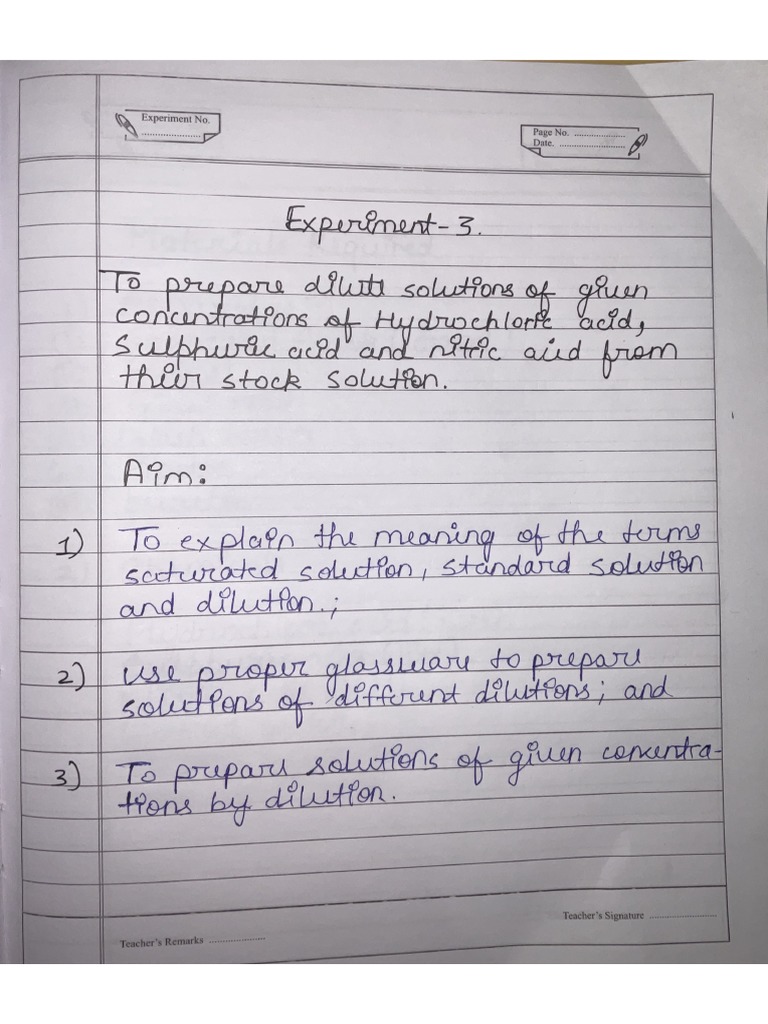 Experiment No. ......................
Page No. ......................
Date. ......................
Experiment-3.
To prepare dilute solutions of given
concentrations of Hydrochloric acid,
Sulphuric acid and nitric acid from
their stock solution.
Aim:
1) To explain the meaning of the terms
saturated solution, standard solution
and dilution.;
2) use proper glassware to prepare
solutions of different dilutions; and
3) To prepare solutions of given concentra-
tions by dilution.
Teacher's Signature ......................
Teacher's Remarks ......................